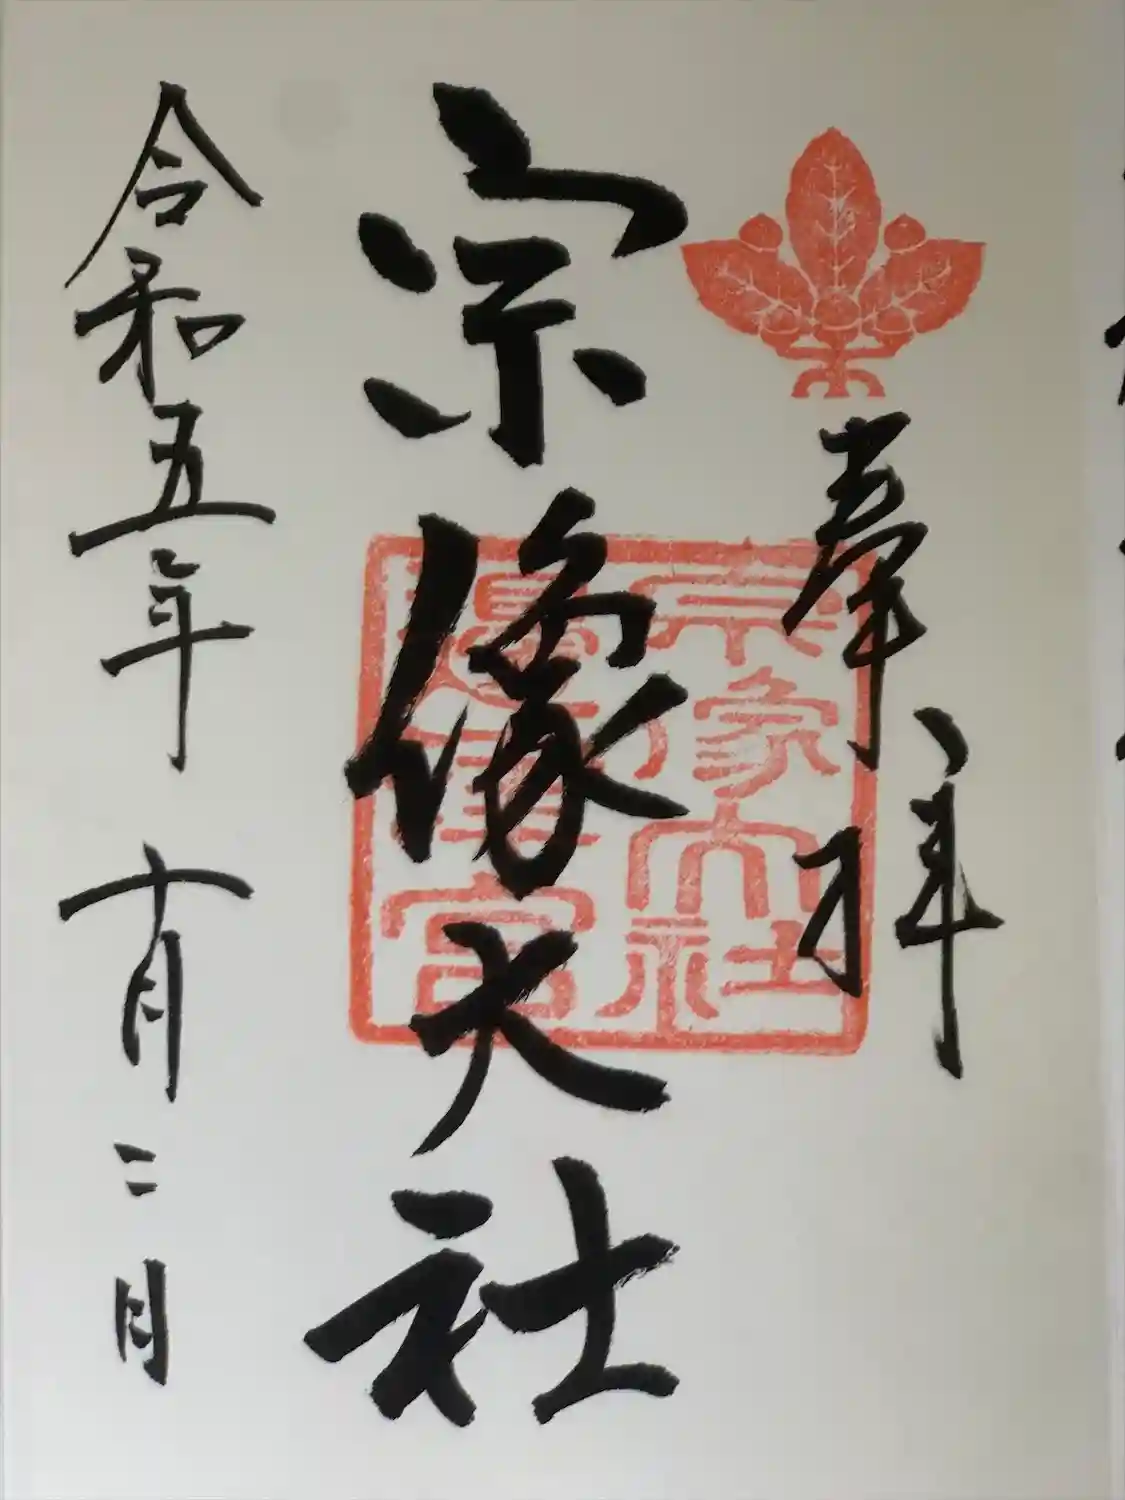 奉拝
宗像大社
宗像大社
邊津宮
令和五年十月二日